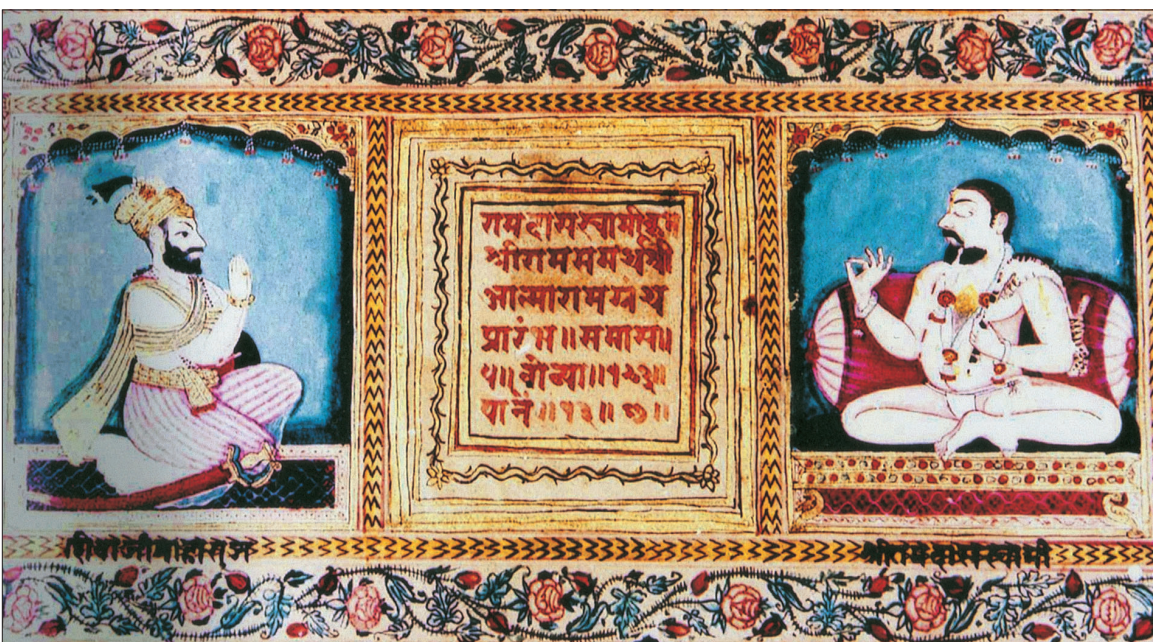 रामदासस्वामीकृ॥
श्रीरामसमर्थश्री
आत्मारामग्रंथ
प्रारंभ॥समास॥
५॥वोव्या॥१८३॥
पाने॥१३॥छ॥
शिवाजीमाहाराज
श्रीरामदासस्वामी